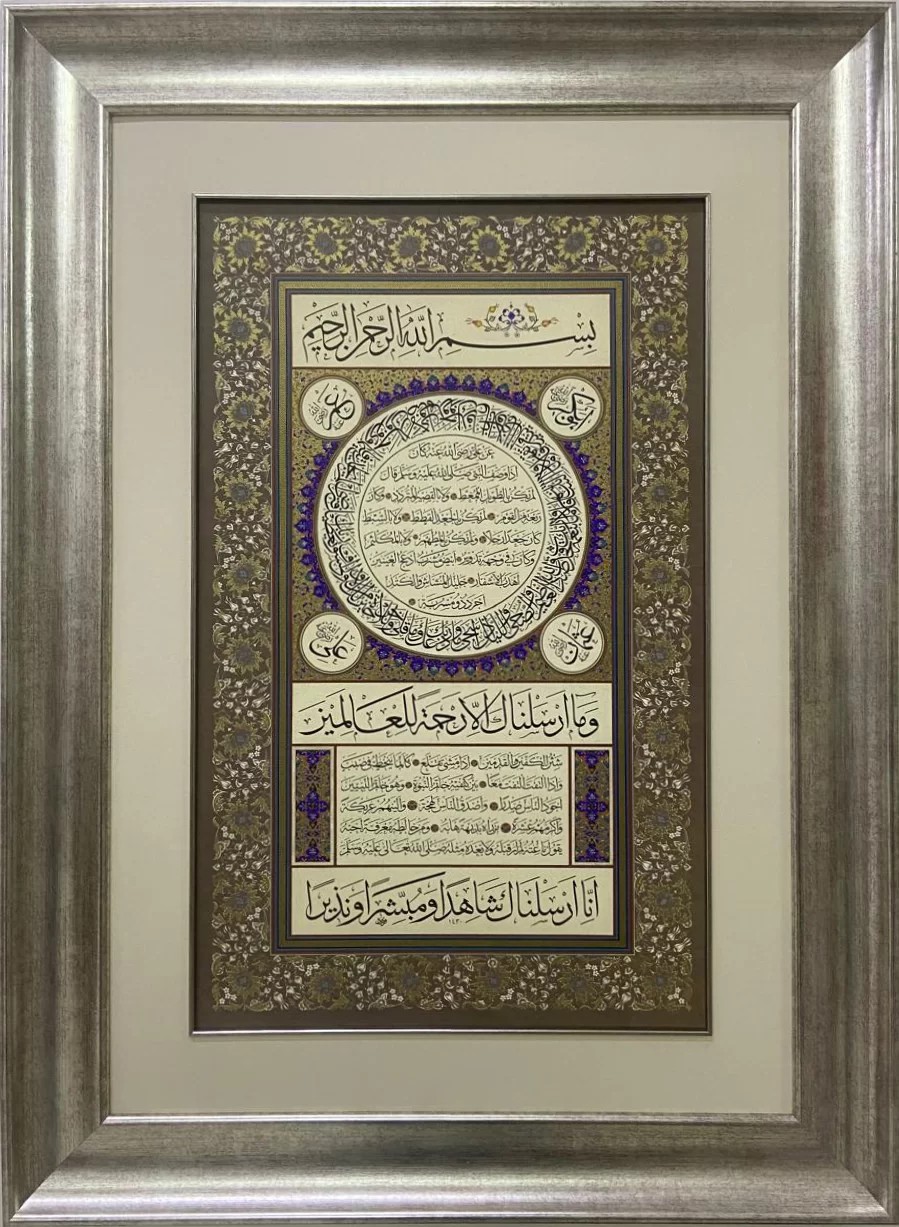 بِسْمِ اللهِ الرَّحْمٰنِ الرَّحِيمِ
ابوبكر رضي الله عنه
عمر رضي الله عنه
عن علي رضي الله عنه كان
اذا وصف النبي صلى الله عليه وسلم قال
لم يكن بالطويل الممغط ولا بالقصير المتردد وكان
ربعة من القوم لم يكن بالجعد القطط ولا بالسبط
كان جعدا رجلا ولم يكن بالمطهم ولا بالمكلثم
وكان في وجهه تدوير ابيض مشرب ادعج العينين
اهدب الاشفار جليل المشاش والكتد
اجرد ذو مسربة
عثمان رضي الله عنه
علي رضي الله عنه
وَمَا اَرْسَلْنَاكَ اِلَّا رَحْمَةً لِلْعَالَمِينَ
شثن الكفين والقدمين اذا مشى تقلع كانما ينحط في صبب
واذا التفت التفت معا بين كتفيه خاتم النبوة وهو خاتم النبيين
اجود الناس صدرا واصدق الناس لهجة والينهم عريكة
واكرمهم عشرة من رآه بديهة هابه ومن خالطه معرفة احبه
يقول ناعته لم ار قبله ولا بعده مثله صلى الله تعالى عليه وسلم
اِنَّا اَرْسَلْنَاكَ شَاهِدًا وَمُبَشِّرًا وَنَذِيرًا